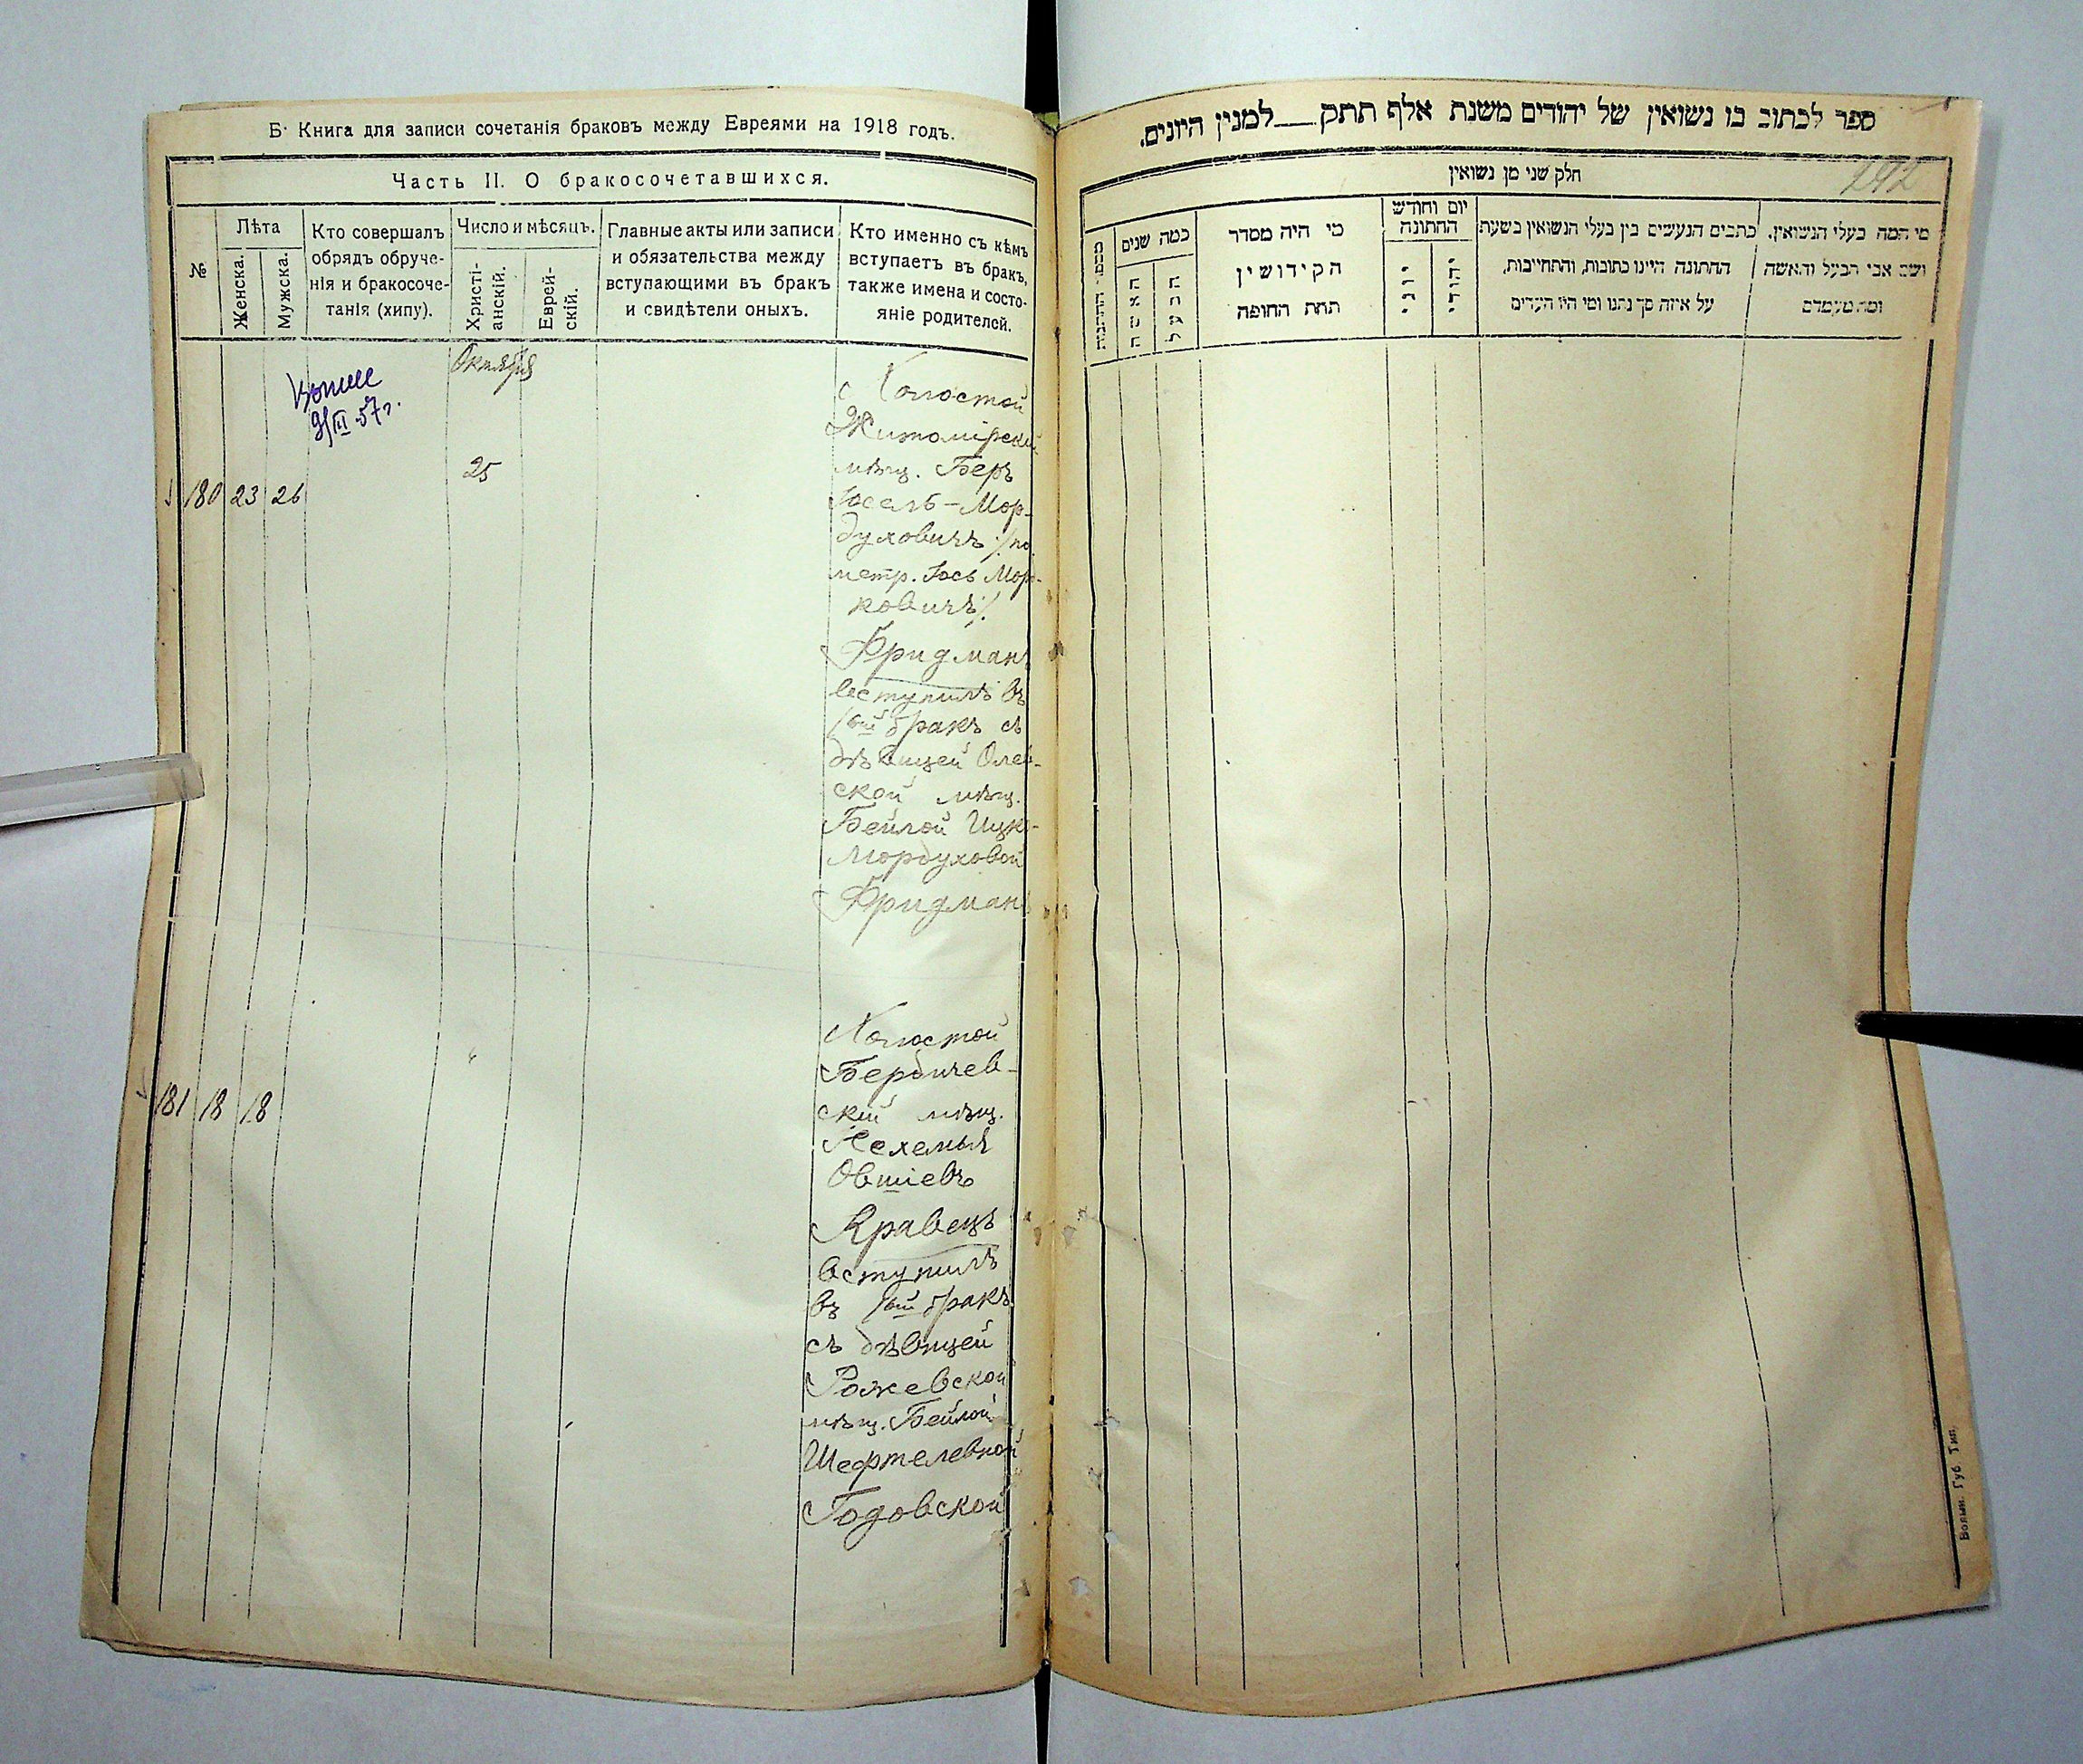 Б. Книга для записи сочетанія браковъ между Евреями на 1918 годъ.
Часть II. О бракосочетавшихся.
№
Лѣта
Женска.
Мужска.
Кто совершалъ
обрядъ обруче-
нія и бракосоче-
танія (хипу).
Число и мѣсяцъ.
Христі-
анскій.
Еврей-
скій.
Главные акты или записи
и обязательства между
вступающими въ бракъ
и свидѣтели оныхъ.
Кто именно съ кѣмъ
вступаетъ въ бракъ,
также имена и состо-
яніе родителей.
Октября
9/III 57г.
180 23 26
25
Холостой
Житомірскій
мѣщ. Беръ
Іосель-Мор-
духовичъ /по
метр. Іось Мор-
ковичъ/.
Фридманъ
вступилъ въ
1ый бракъ съ
дѣвицей Олев-
ской мѣщ.
Бейлой Ицко-
Мордуховой
Фридманъ
181 18 18
Холостой
Бердичев-
скій мѣщ.
Нехемья
Овшіевъ
Кравецъ
вступилъ
въ 1ый бракъ
съ дѣвицей
Рожевской
мѣщ. Бейлой
Шефтелевной
Годовской
ספר לכתוב בו נשואין של יהודים משנת אלף תתק___למנין היונים.
חלק שני מן נשואין
242
מספר החתונות
כמה שנים
האשה
הבעל
מי היה מסדר
הקידושין
תחת החופה
יום וחודש
החתונה
יוני
יהודי
כתבים הנעשים בין בעלי הנשואין בשעת
החתונה היינו כתובות, והתחייבות,
על איזה סך נתנו ומי היו העדים
מי המה בעלי הנשואין,
ושם אבי הבעל והאשה
ומה מעמדם
Волын. Губ. Тип.